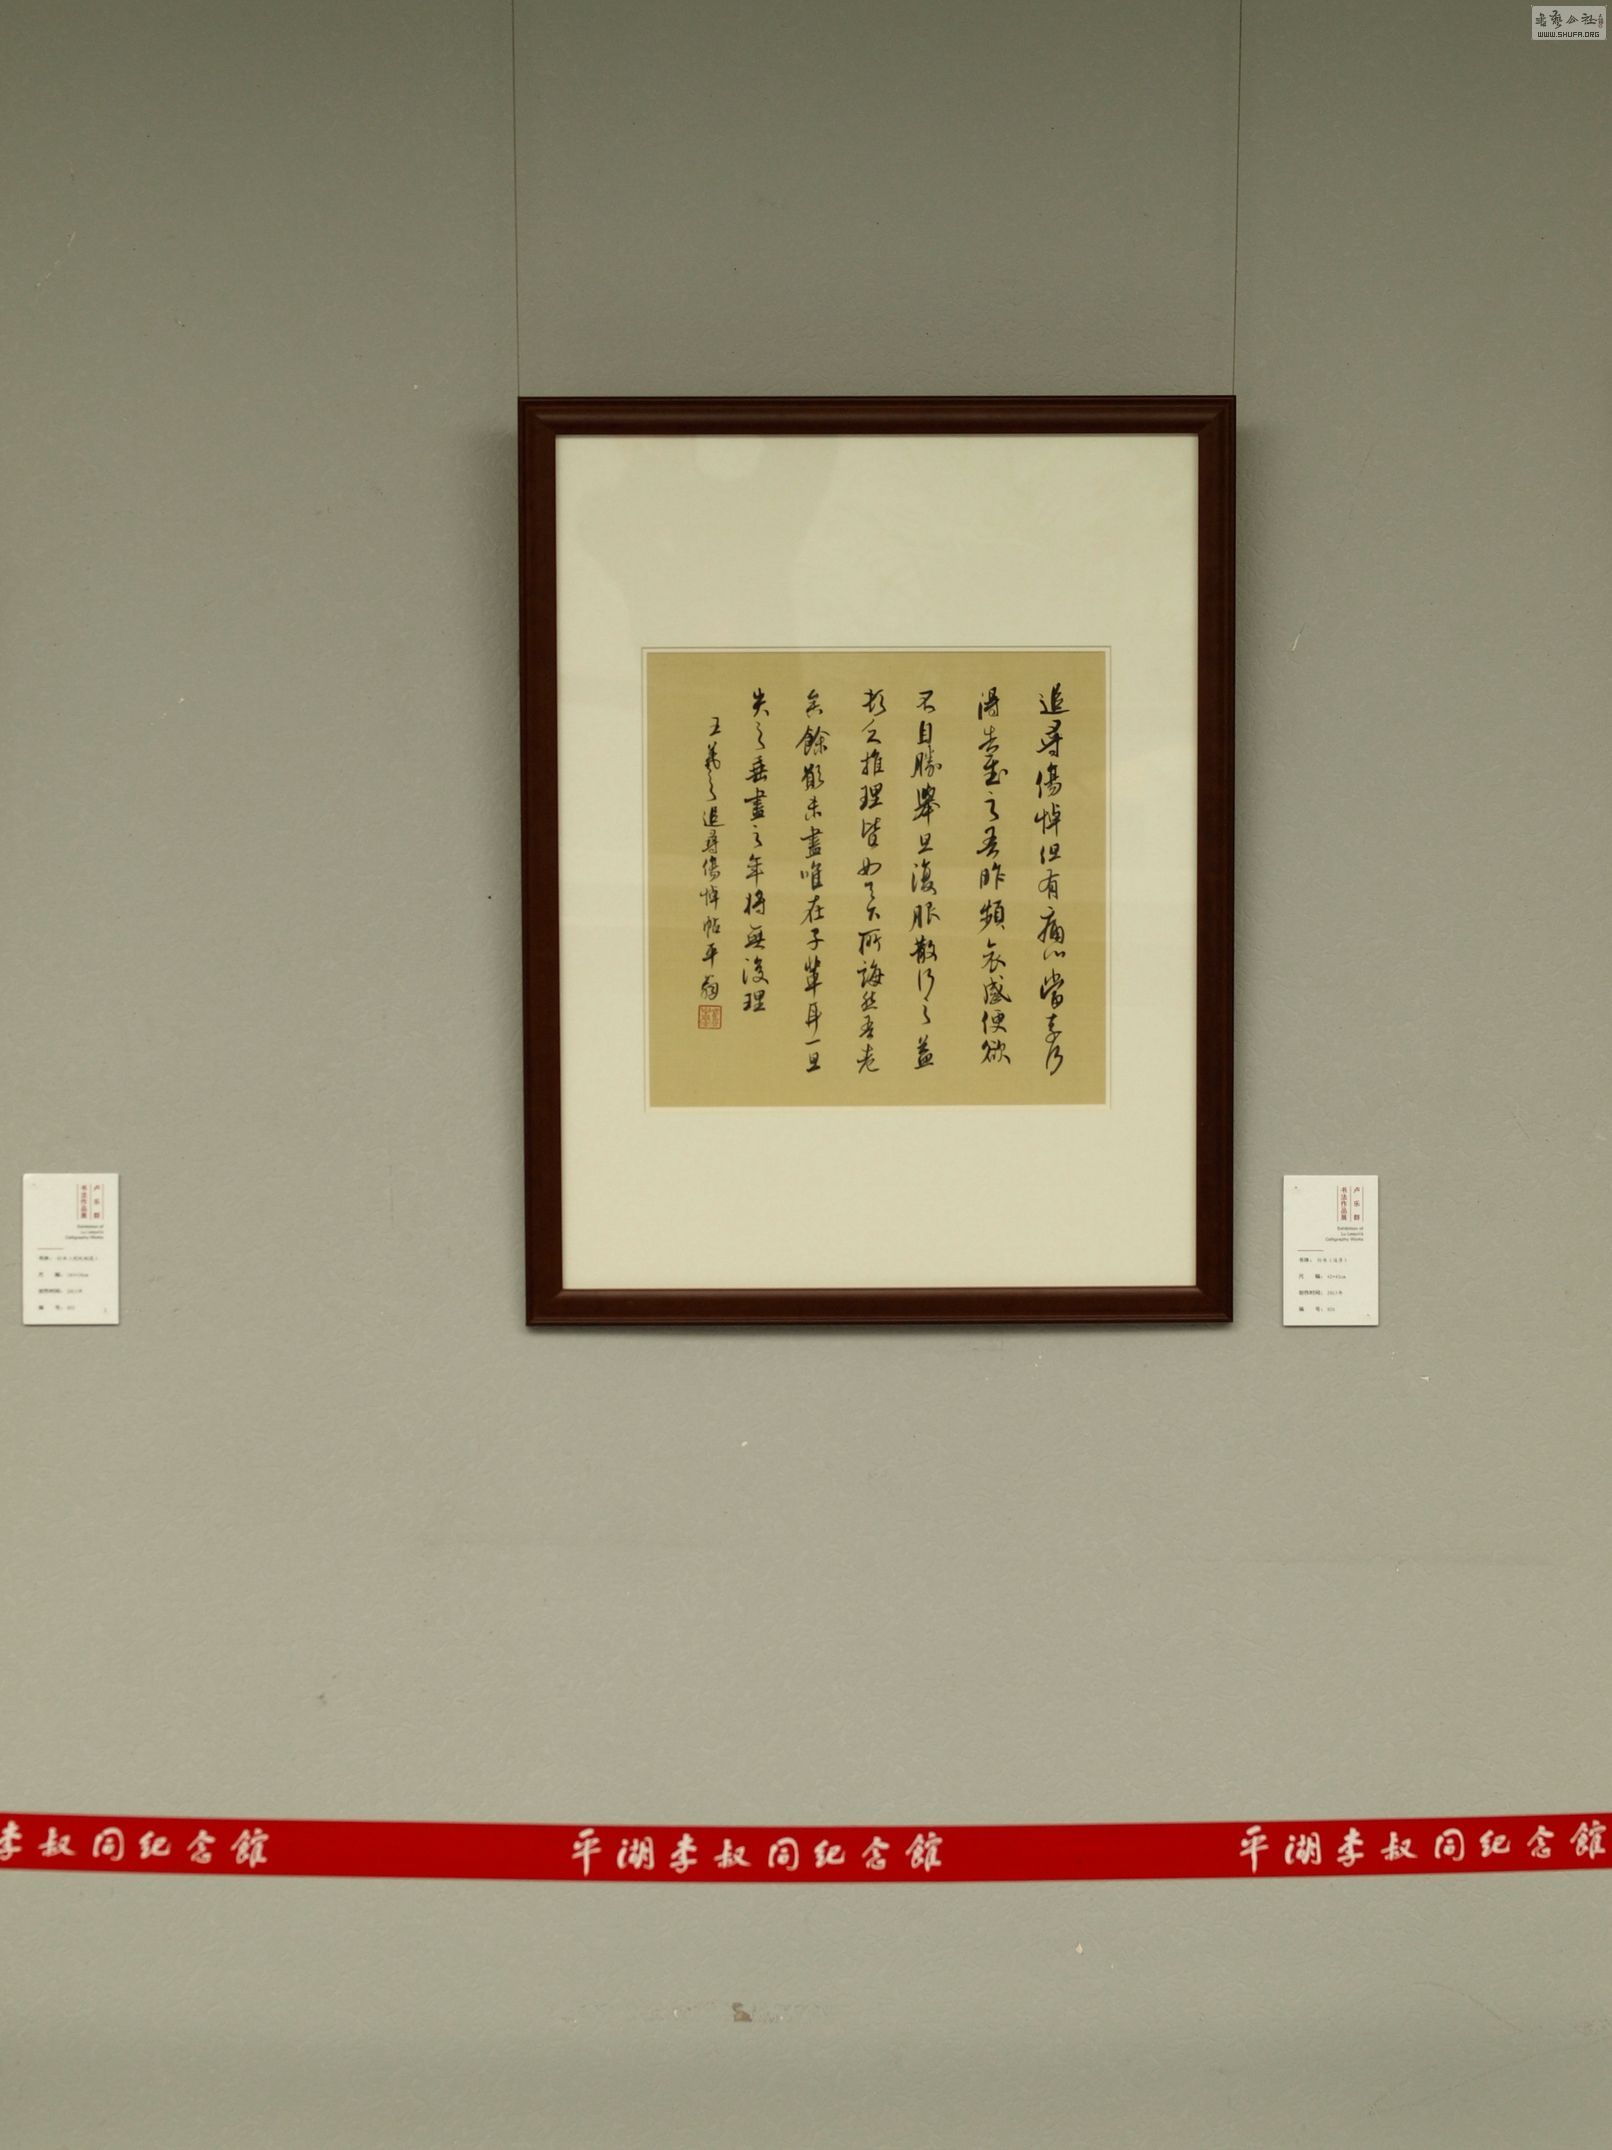 書藝公社
WWW.SHUFA.ORG
追尋傷悼但有痛心當奈何
得告慰之吾昨頻哀感便欲
不自勝舉旦復服散行之益
頓乏推理皆如足下所誨然吾老
矣餘願未盡唯在子輩耳一旦
失之垂盡之年將無復理
王羲之追尋傷悼帖平
卢乐群
书法作品展
Exhibition of
Lu Lequn's
Calligraphy Works
尺 幅:
创作时间: 2013年
编 号:
卢乐群
书法作品展
Exhibition of
Lu Lequn's
Calligraphy Works
尺 幅:
创作时间: 2013年
编 号:
李叔同纪念館
平湖李叔同纪念館
平湖李叔同纪念館